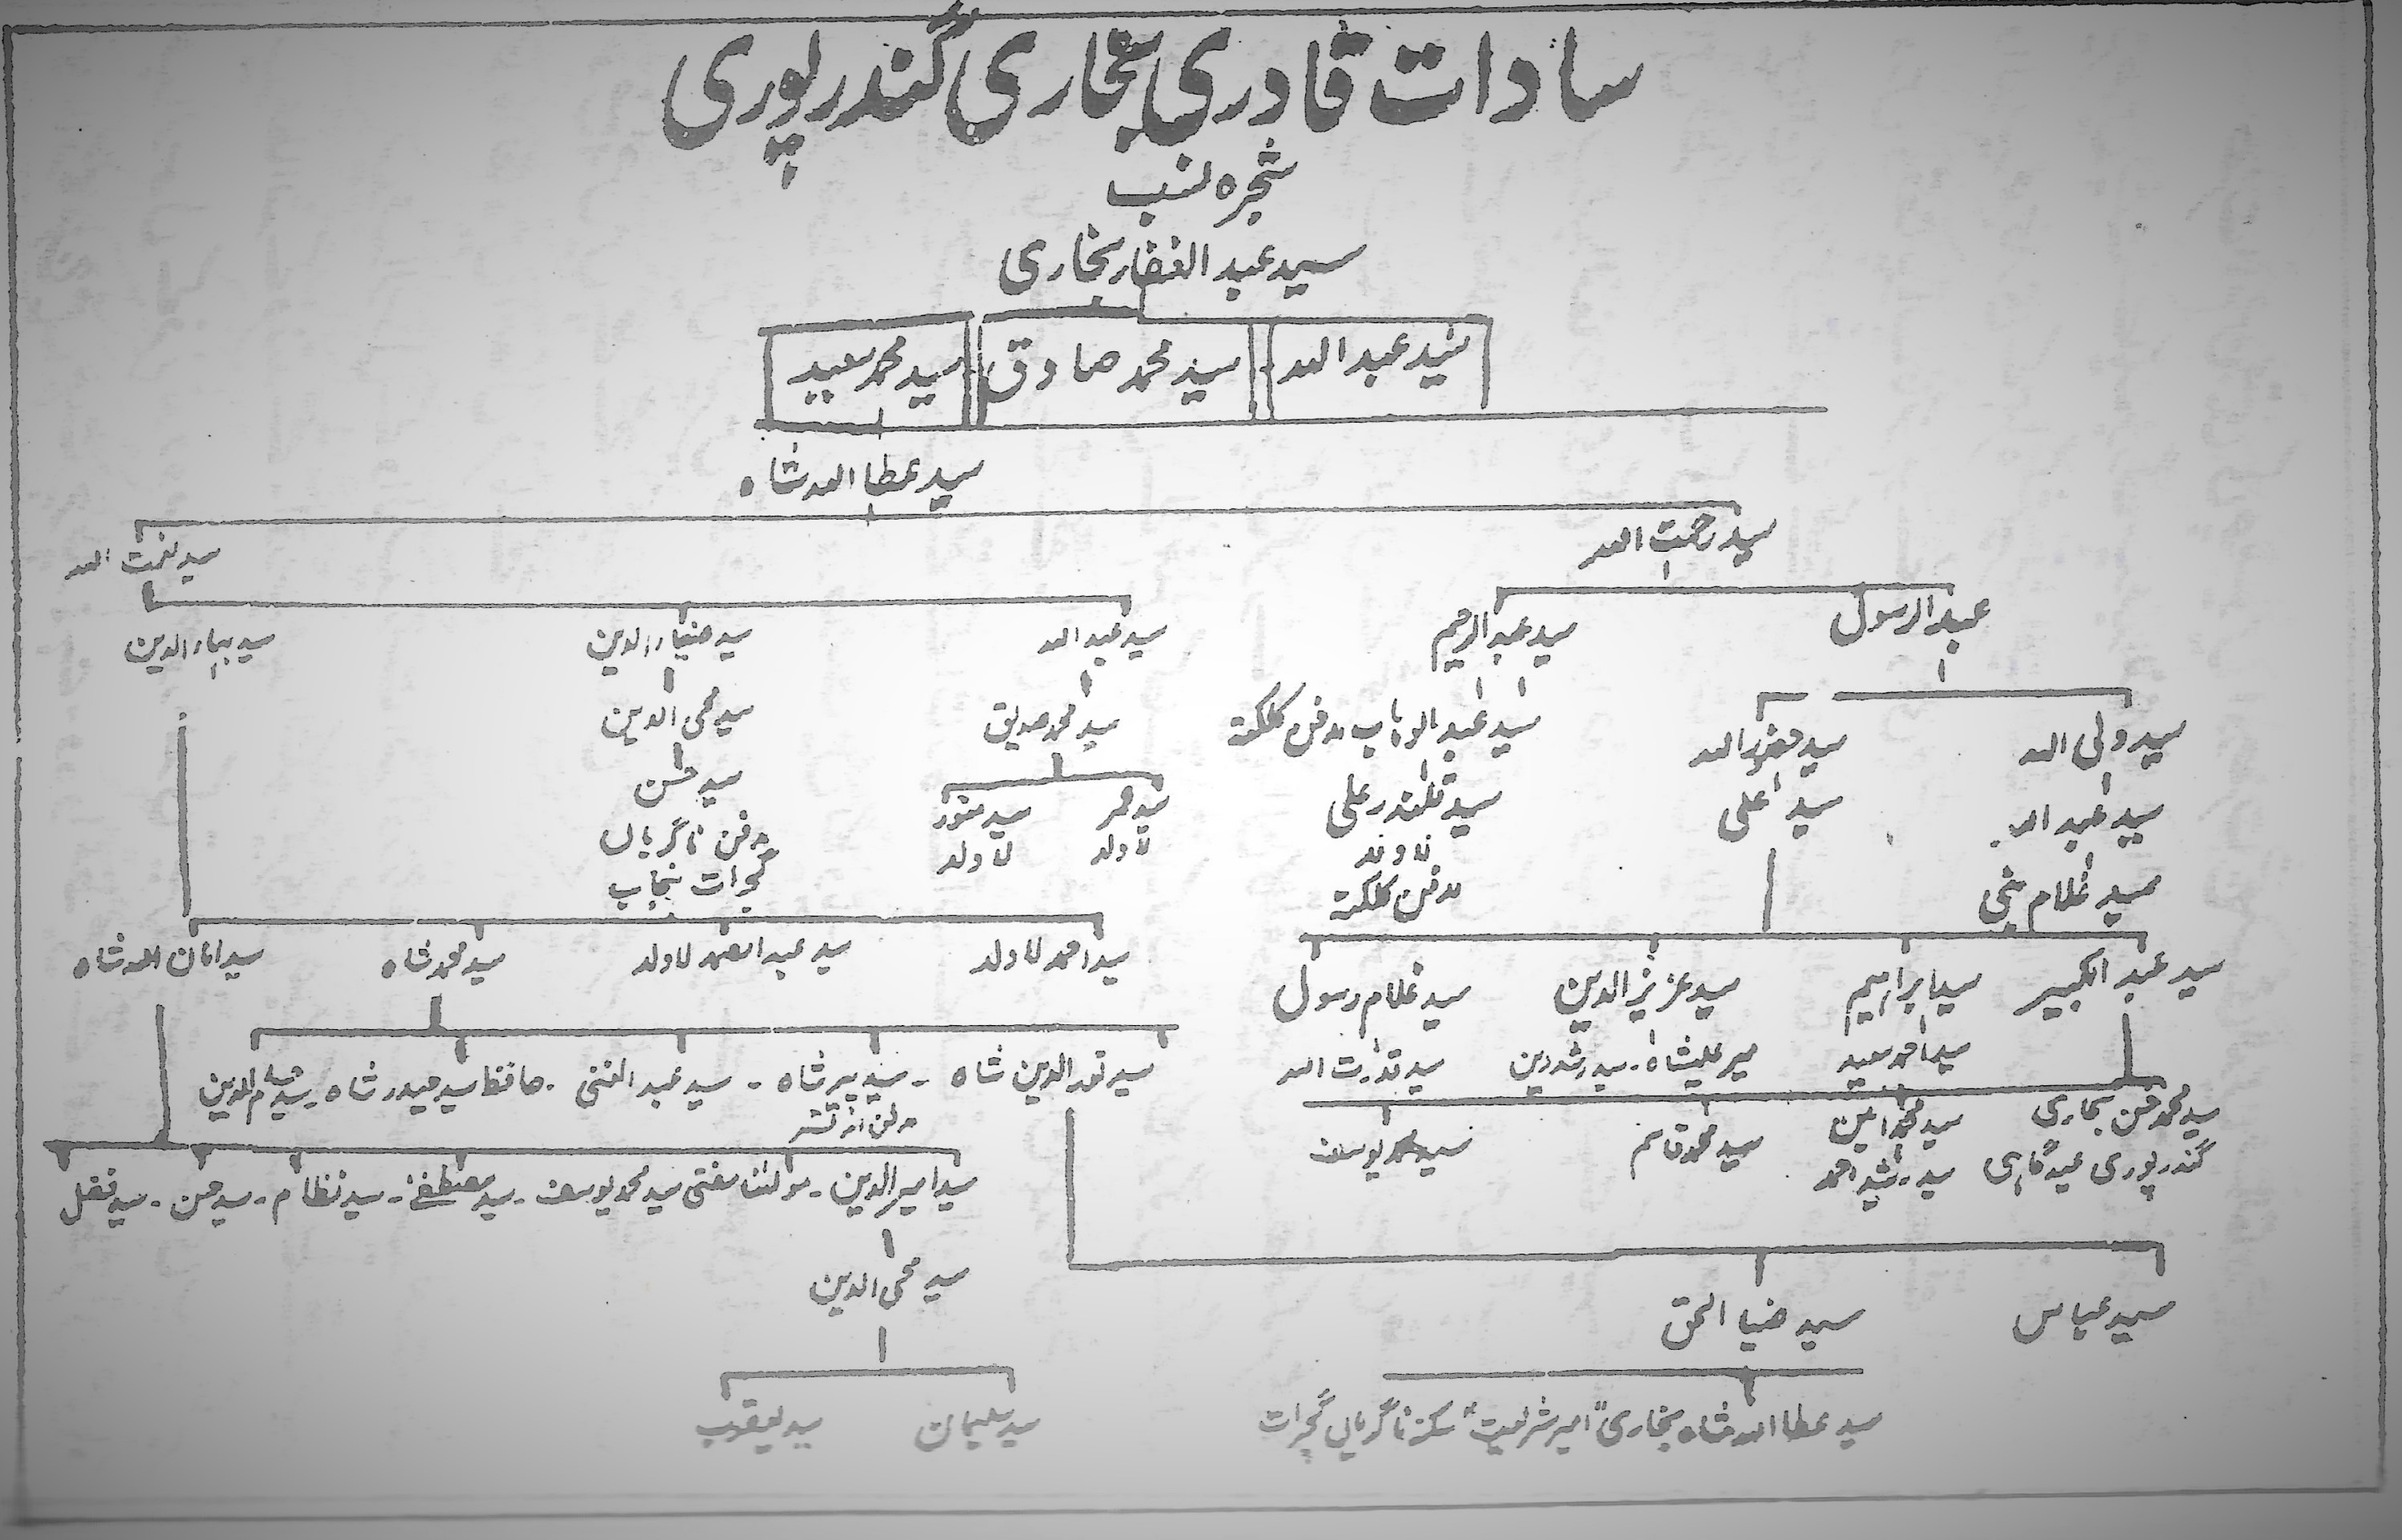 سادات قادری بخاری گندرپوری
شجرہ نسب
سید عبد الغفار بخاری
سید عبد اللہ - سید محمد صادق - سید محمد سعید
سید عطا اللہ شاہ
سید رحمت اللہ
سید نعمت اللہ
عبد الرسول
سید عبد الرحیم
سید عبد اللہ
سید ضیاء الدین
سید بہاء الدین
سید ولی اللہ
سید معزز اللہ
سید عبد الوہاب مدفن کلکتہ
سید محمد صدیق
سید محی الدین
سید عبد اللہ
سید اعلی
سید قلندر علی
سید عمر
سید منور
سید حسن
لا ولد
لا ولد
مدفن ناگڑیاں
سید غلام نبی
مدفن کلکتہ
گجرات پنجاب
سید عبد الکبیر
سید ابراہیم
سید عزیز الدین
سید غلام رسول
سید احمد لا ولد
سید عبد الصمد لا ولد
سید محمد شاہ
سید امان اللہ شاہ
سید احمد سعید
میر علیشاہ - سید رشد دین
سید قدرت اللہ
سید نور الدین شاہ - سید پیر شاہ - سید عبد الغنی - حافظ سید حیدر شاہ - سید حسام الدین
سید محمد حسن بخاری
سید محمد امین
سید محمد قاسم
سید محمد یوسف
گندرپوری عیدگاہی
سید رشید احمد
سید امیر الدین - مولانا مفتی سید محمد یوسف - سید مصطفےٰ - سید نظام - سید حسن - سید فضل
سید محی الدین
سید عباس
سید ضیا الحق
سید عطا اللہ شاہ بخاری "امیر شریعت" سکنہ ناگڑیاں گجرات
سید سلیمان
سید یعقوب